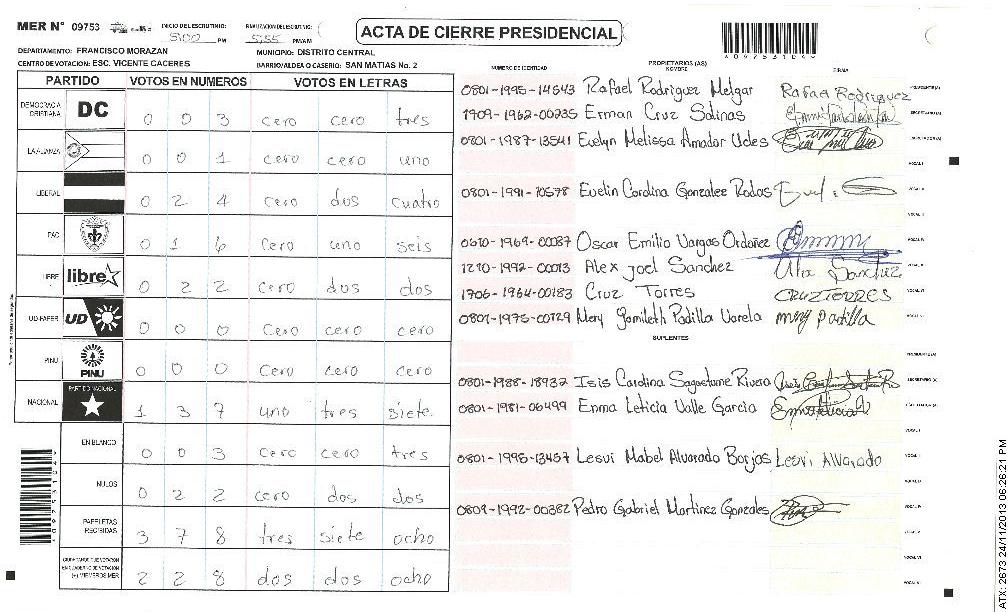 MER N° 09753
INICIO DEL ESCRUTINIO: 5:00 PM
FINALIZACION DEL ESCRUTINIO: 5:55 PM/AM
ACTA DE CIERRE PRESIDENCIAL
DEPARTAMENTO: FRANCISCO MORAZAN
MUNICIPIO: DISTRITO CENTRAL
CENTRO DE VOTACION: ESC. VICENTE CACERES
BARRIO/ALDEA O CASERIO: SAN MATIAS No. 2
PARTIDO VOTOS EN NUMEROS VOTOS EN LETRAS
DEMOCRACIA CRISTIANA DC 0 0 3 cero cero tres
LA ALIANZA 0 0 1 cero cero uno
LIBERAL 0 2 4 cero dos cuatro
PAC 0 1 6 cero uno seis
LIBRE libre 0 2 2 cero dos dos
UD-FAPER UD 0 0 0 cero cero cero
PINU PINU 0 0 0 cero cero cero
NACIONAL PARTIDO NACIONAL 1 3 7 uno tres siete
EN BLANCO 0 0 3 cero cero tres
NULOS 0 2 2 cero dos dos
PAPELETAS RECIBIDAS 3 7 8 tres siete ocho
CIUDADANOS QUE VOTARON EN CUADERNO DE VOTACION (+) MIEMBROS MER 2 2 8 dos dos ocho
NUMERO DE IDENTIDAD PROPIETARIOS (AS) NOMBRE FIRMA
0801-1995-14543 Rafael Rodriguez Melgar Rafael Rodriguez PRESIDENTE(A)
1709-1962-00235 Erman Cruz Salinas SECRETARIO (A)
0801-1987-13541 Evelyn Melissa Amador Udes ESCRUTADOR(A)
VOCAL I
0801-1991-10578 Evelin Carolina Gonzalez Rodas VOCAL II
VOCAL III
0610-1969-00087 Oscar Emilio Vargas Ordoñez VOCAL IV
1210-1992-00013 Alex Joel Sanchez Alex Sanchez VOCAL V
1706-1964-00183 Cruz Torres CRUZ TORRES VOCAL VI
0801-1975-00729 Mery Yamileth Padilla Varela mery padilla
SUPLENTES
PRESIDENTE(A)
0801-1988-18932 Isis Carolina Sagastume Rivera SECRETARIO (A)
0801-1981-06499 Enma Leticia Valle Garcia ESCRUTADOR(A)
VOCAL I
0801-1995-13457 Lesvi Mabel Alvarado Borjas Lesvi Alvarado
VOCAL III
0801-1992-00382 Pedro Gabriel Martinez Gonzales VOCAL IV
VOCAL V
VOCAL VI
ATX: 2673 24/11/2013 06:26:21 PM